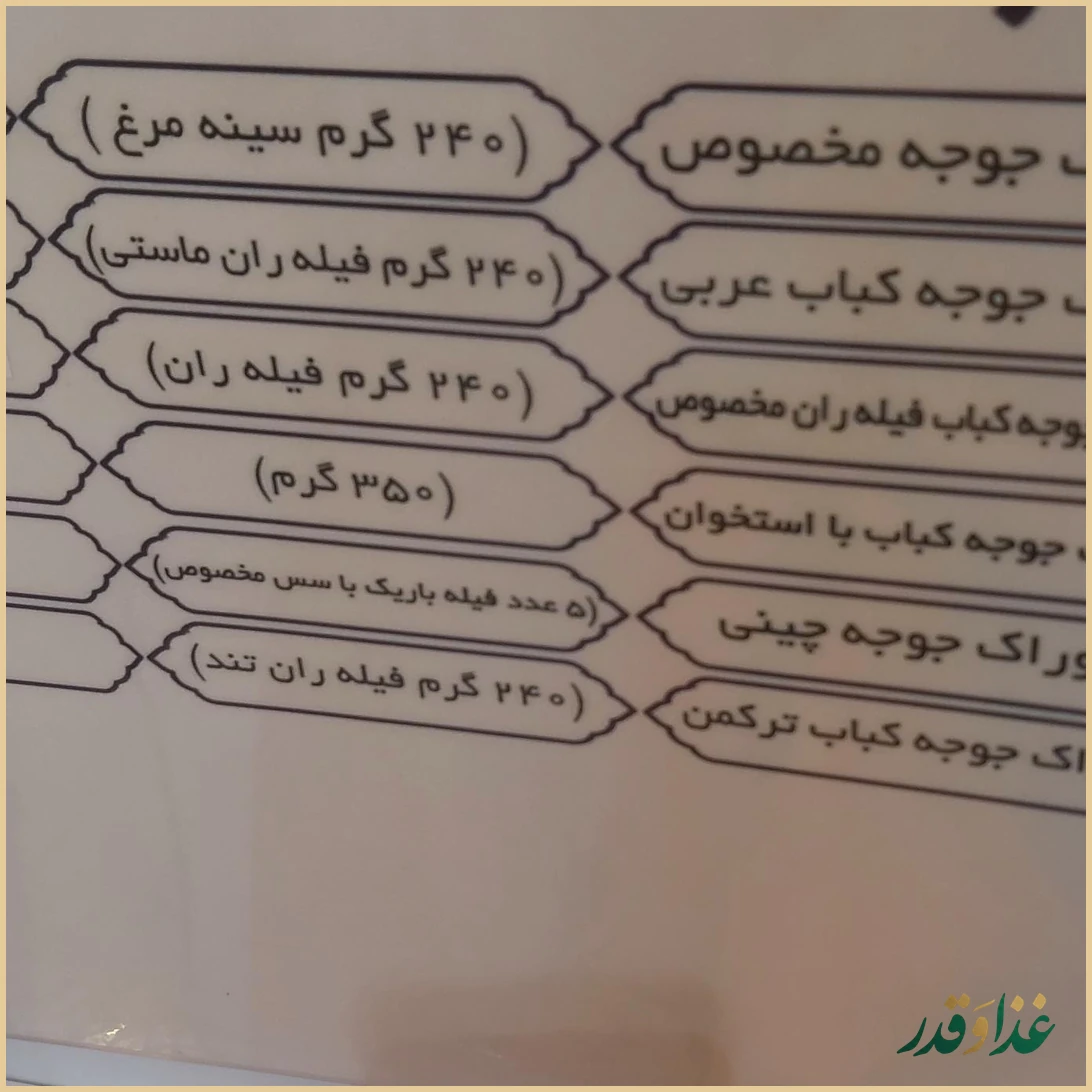 جوجه مخصوص (۲۴۰ گرم سینه مرغ )
جوجه کباب عربی (۲۴۰ گرم فیله ران ماستی)
کباب فیله ران مخصوص (۲۴۰ گرم فیله ران)
جوجه کباب با استخوان (۳۵۰ گرم)
جوجه چینی (۵ عدد فیله باریک با سس مخصوص)
جوجه کباب ترکمن (۲۴۰ گرم فیله ران تند)
غذا و قدر